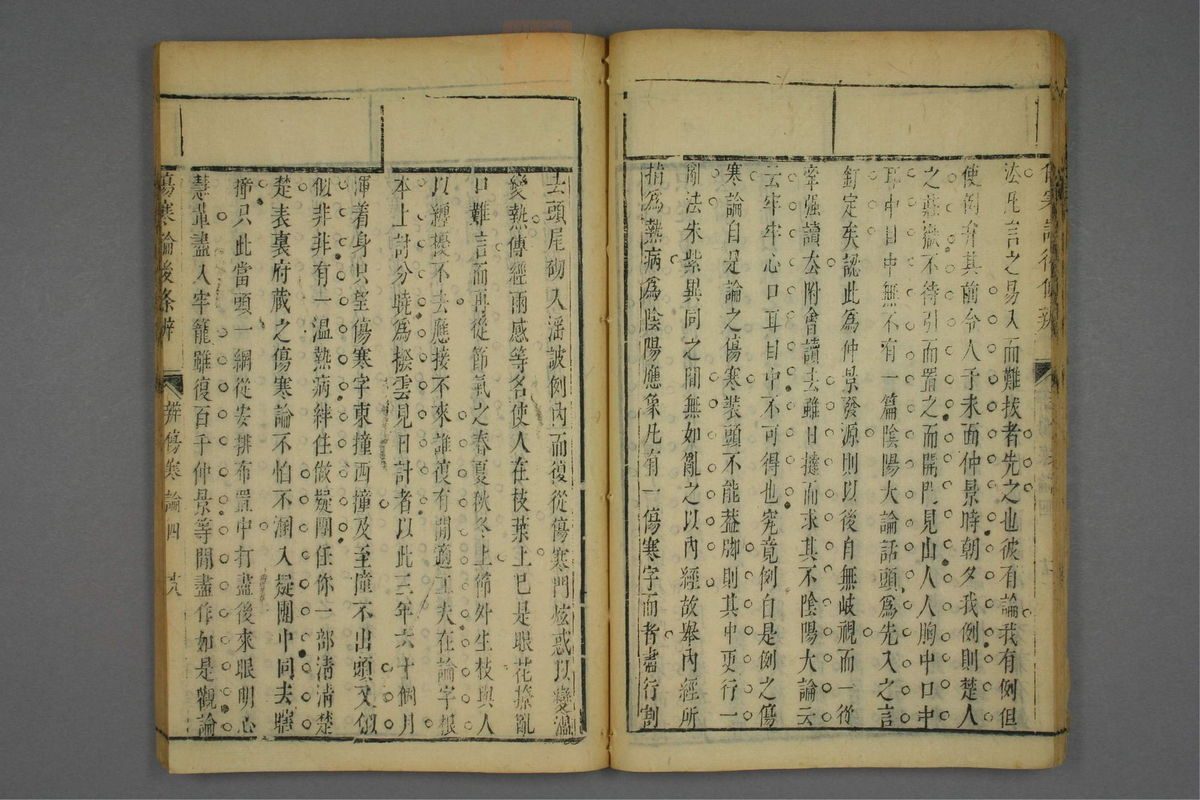 法凡言之易入而難拔者先之也彼有論我有例但
使例有其前令人于未面仲景時朝夕我例則楚人
之莊嶽不待引而置之而開門見山人人胸中口中
耳中目中無不有一篇陰陽大論話頭爲先入之言
釘定矣認此爲仲景發源則以後自無岐視而一從
牽强讀去附會讀去雖日撻而求其不陰陽大論云
云牢牢心口耳目中不可得也究竟例自是例之傷
寒論自是論之傷寒裝頭不能蓋脚則其中更行一
亂法朱紫異同之間無如亂之以內經故舉內經所
指爲熱病爲陰陽應象凡有一傷寒字而者盡行割
去頭尾砌入滛詖例內而復從傷寒門炫惑以變溫
變熱傳經兩感等名使人在枝葉上巳是眼花撩亂
口難言而再從節氣之春夏秋冬上節外生枝與人
以纏擾不去應接不來誰復有閒適工夫在論字根
本上討分曉爲撥雲見日計者以此三年六十個月
渾着身只望傷寒字東撞西撞及至撞不出頭又似
似非非有一溫熱病絆住做疑團任你一部清清楚
楚表裏府藏之傷寒論不怕不溷入疑團中同去瞎
撞只此當頭一綱從安排布置中打盡後來眼明心
慧輩盡入牢籠雖復百千仲景等閒盡作如是觀論
傷寒論後條辨
辨傷寒論四
十八